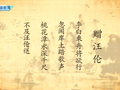 赠汪伦
李白乘舟将欲行
忽闻岸上踏歌声
桃花潭水深千尺
不及汪伦送